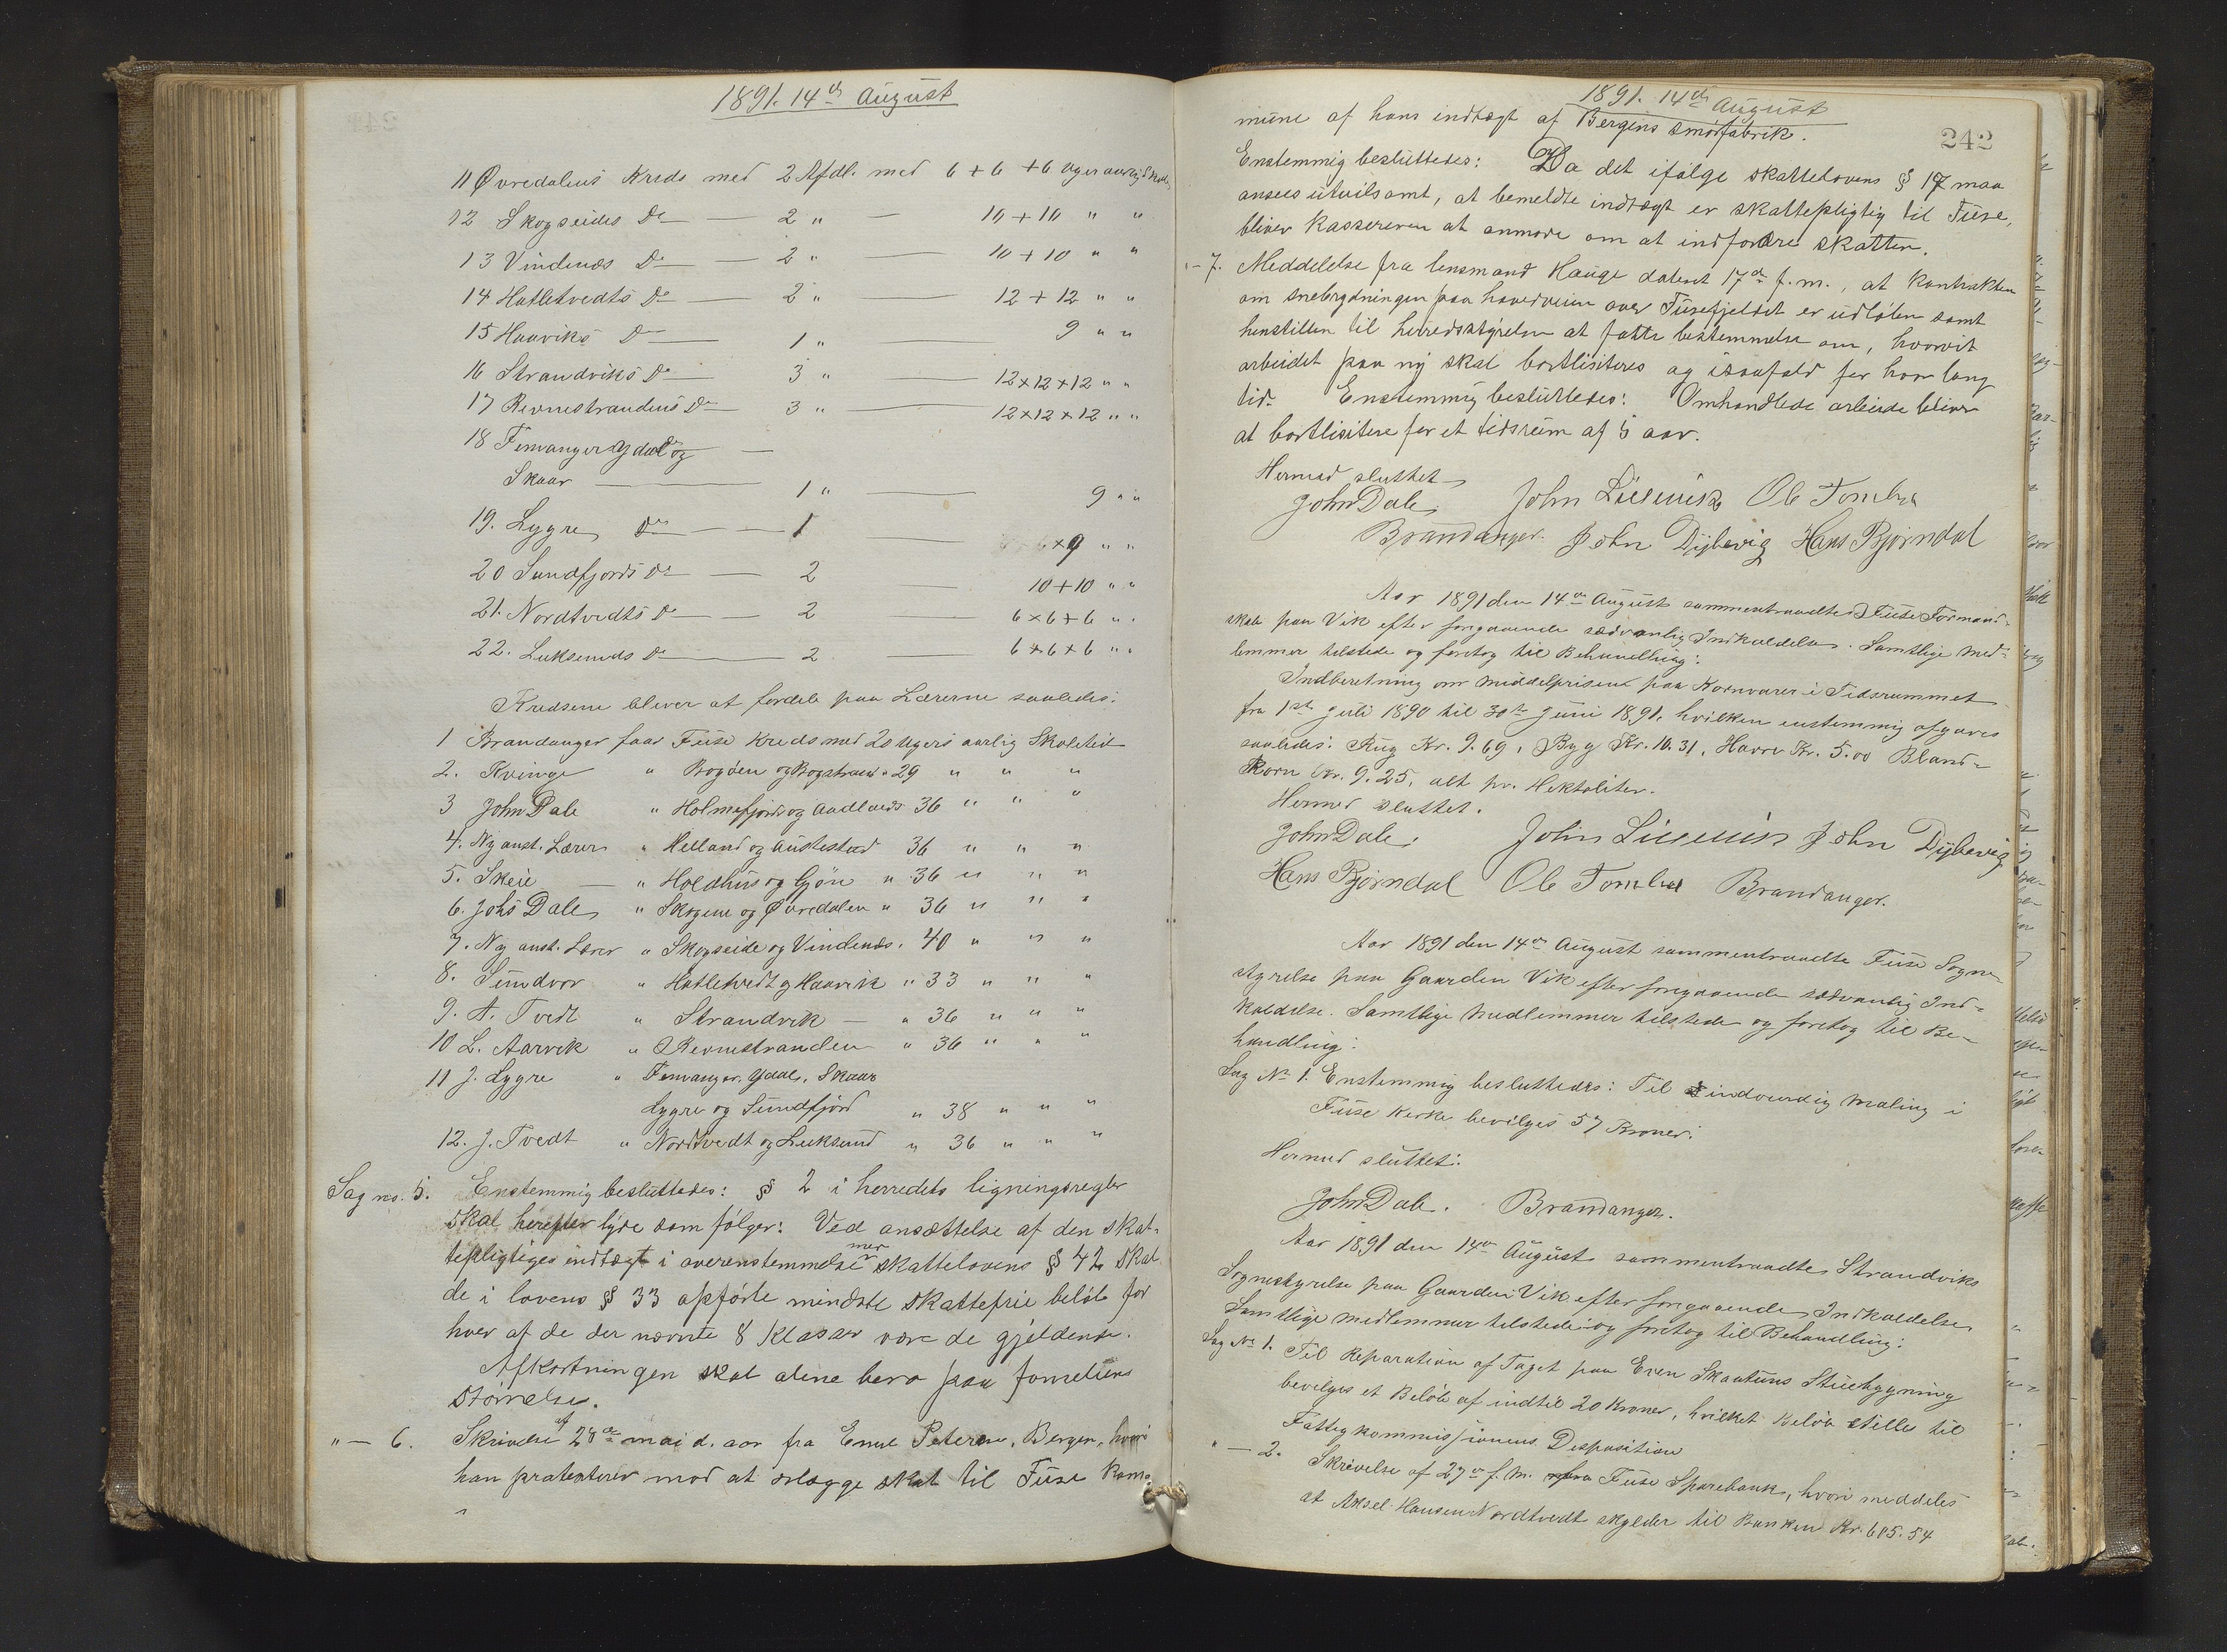 1891. 14de August
11 Øvredalens Kreds med 2 Afdl. med 6 + 6 + 6 uger aarlig Skole
12 Skogseides Do — 2 " — 10 + 10 " "
13 Vindenæs Do — 2 " — 10 + 10 " "
14 Hatletvedts Do — 2 " — 12 + 12 " "
15 Haaviks Do — 1 " 9 " "
16 Strandviks Do — 3 " — 12 x 12 x 12 " "
17 Revnestrandens Do — 3 " — 12 x 12 x 12 " "
18 Femanger Ydal og —
Skaar — 1 " — 9 " "
19. Lygre Do — 1 — 9 " "
20 Sundfjords Do — 2 — 10 + 10 " "
21. Nordtvedts Do — 2 6 x 6 + 6 " "
22. Luksunds Do — 2 — 6 + 6 x 6 " "
Kredsene bliver at fordele paa Lærerne saaledes:
1 Brandanger faar Fuse Kreds med 20 Ugers aarlig Skoletid
2. Kvinge " Bogøen og Bogstrand " 29 " " "
3 John Dale " Holmefjords og Aadlands 36 " " "
4. Ny anst. Lærer " Helland og Austestad 36 " " "
5. Skeie — " Holdhus og Gjøn " 36 " " "
6. Johs Dale " Skogene og Øvredalen " 36 " " "
7. Ny anst. Lærer " Skogseide og Vindenæs " 40 " " "
8. Sundvor " Hatletvedt og Haavik " 33 " " "
9. A. Tvedt " Strandvik — " 36 " " "
10 L. Aarvik " Revnestranden " 36 " " "
11 J. Lygre " Femanger, Ydal, Skaar
Lygre og Sundfjord " 38 " " "
12. J. Tvedt " Nordtvedt og Luksund " 36 " " "
Sag no. 5. Enstemmig besluttedes: § 2 i herredets ligningsregler
skal herefter lyde som følger: Ved ansættelse af den skat-
tepligtiges indtægt i overenstemmelse med skattelovens § 42 skal
de i lovens § 33 opførte mindste skattefrie beløb for
hver af de der nævnte 8 klasser være de gjeldende.
Afkortningen skal alene bero paa familiens
størrelse.
" — 6. Skrivelse af 28de mai d. aar fra Emil Petersen, Bergen, hvori
han protesterer mod at erlægge skat til Fuse kom-
1891. 14de August
242
mune af hans indtægt af Bergens smørfabrik.
Enstemmig besluttedes: Da det ifølge skattelovens § 17 maa
ansees utvilsomt, at bemeldte indtægt er skattepligtig til Fuse,
bliver kassereren at anmode om at indfordre skatten.
" – 7. Meddelelse fra lensmand Hauge dateret 17de f. m., at kontrakten
om snebrydningen paa hovedveien over Fusefjeldet er udløben samt
henstillen til herredsstyrelsen at fatte bestemmelse om, hvorvit
arbeidet paa ny skal bortlisiteres og isaafald for hvor lang
tid. Enstemmig besluttedes: Omhandlede arbeide bliver
at bortlisitere for et tidsrum af 5 aar.
Hermed sluttet
John Dale John Ole Tombre
Brandanger. John Dyvevig Hans Bjørndal
Aar 1891 den 14de August sammentraadte Fuse Formand-
skab paa Vik efter foregaaende sædvanlig Indkaldelse. Samtlige Med-
lemmer tilstede og foretog til Behandling:
Indberetning om Middelprisene paa Kornvarer i Tidsrummet
fra 1ste Juli 1890 til 30te Juni 1891, hvilken enstemmig afgaves
saaledes: Rug Kr. 9.69, Byg Kr. 10.31, Havre Kr. 5.00 Bland-
korn Kr. 9.25, alt pr. Hektoliter.
Hermed sluttet.
John Dale. John John Dyvevig
Hans Bjørndal Ole Tombre Brandanger.
Aar 1891 den 14de August sammentraadte Fuse Sogne-
styrelse paa Gaarden Vik efter foregaaende sædvanlig Ind-
kaldelse. Samtlige Medlemmer tilstede og foretog til Be-
handling:
Sag No 1. Enstemmig besluttedes: Til indvendig Maling i
Fuse Kirke bevilges 57 Kroner.
Hermed sluttet.
John Dale. Brandanger.
Aar 1891 den 14de August sammentraadte Strandviks
Sognestyrelse paa Gaarden Vik efter foregaaende Indkaldelse
Samtlige Medlemmer tilstede og foretog til Behandling:
Sag No 1. Til Reparation af Taget paa Even Skaatuns Stuebygning
bevilges et Beløb af indtil 20 Kroner, hvilket Beløb stilles til
Fattigkommissionens Disposition
" — 2. Skrivelse af 27de f. M. fra Fuse Sparebank, hvori meddeles
at Aksel Hansen Nordtvedt skylder til Banken Kr. 605.54